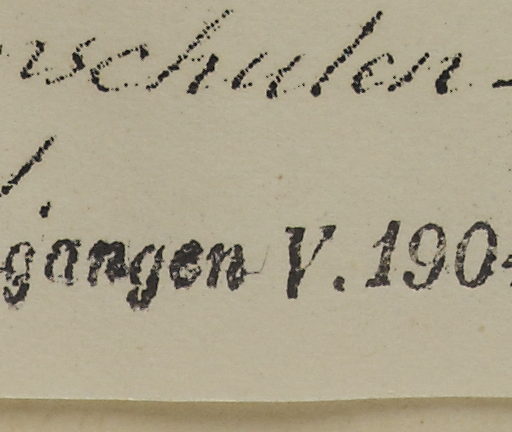 nschulen-
gangen V. 190